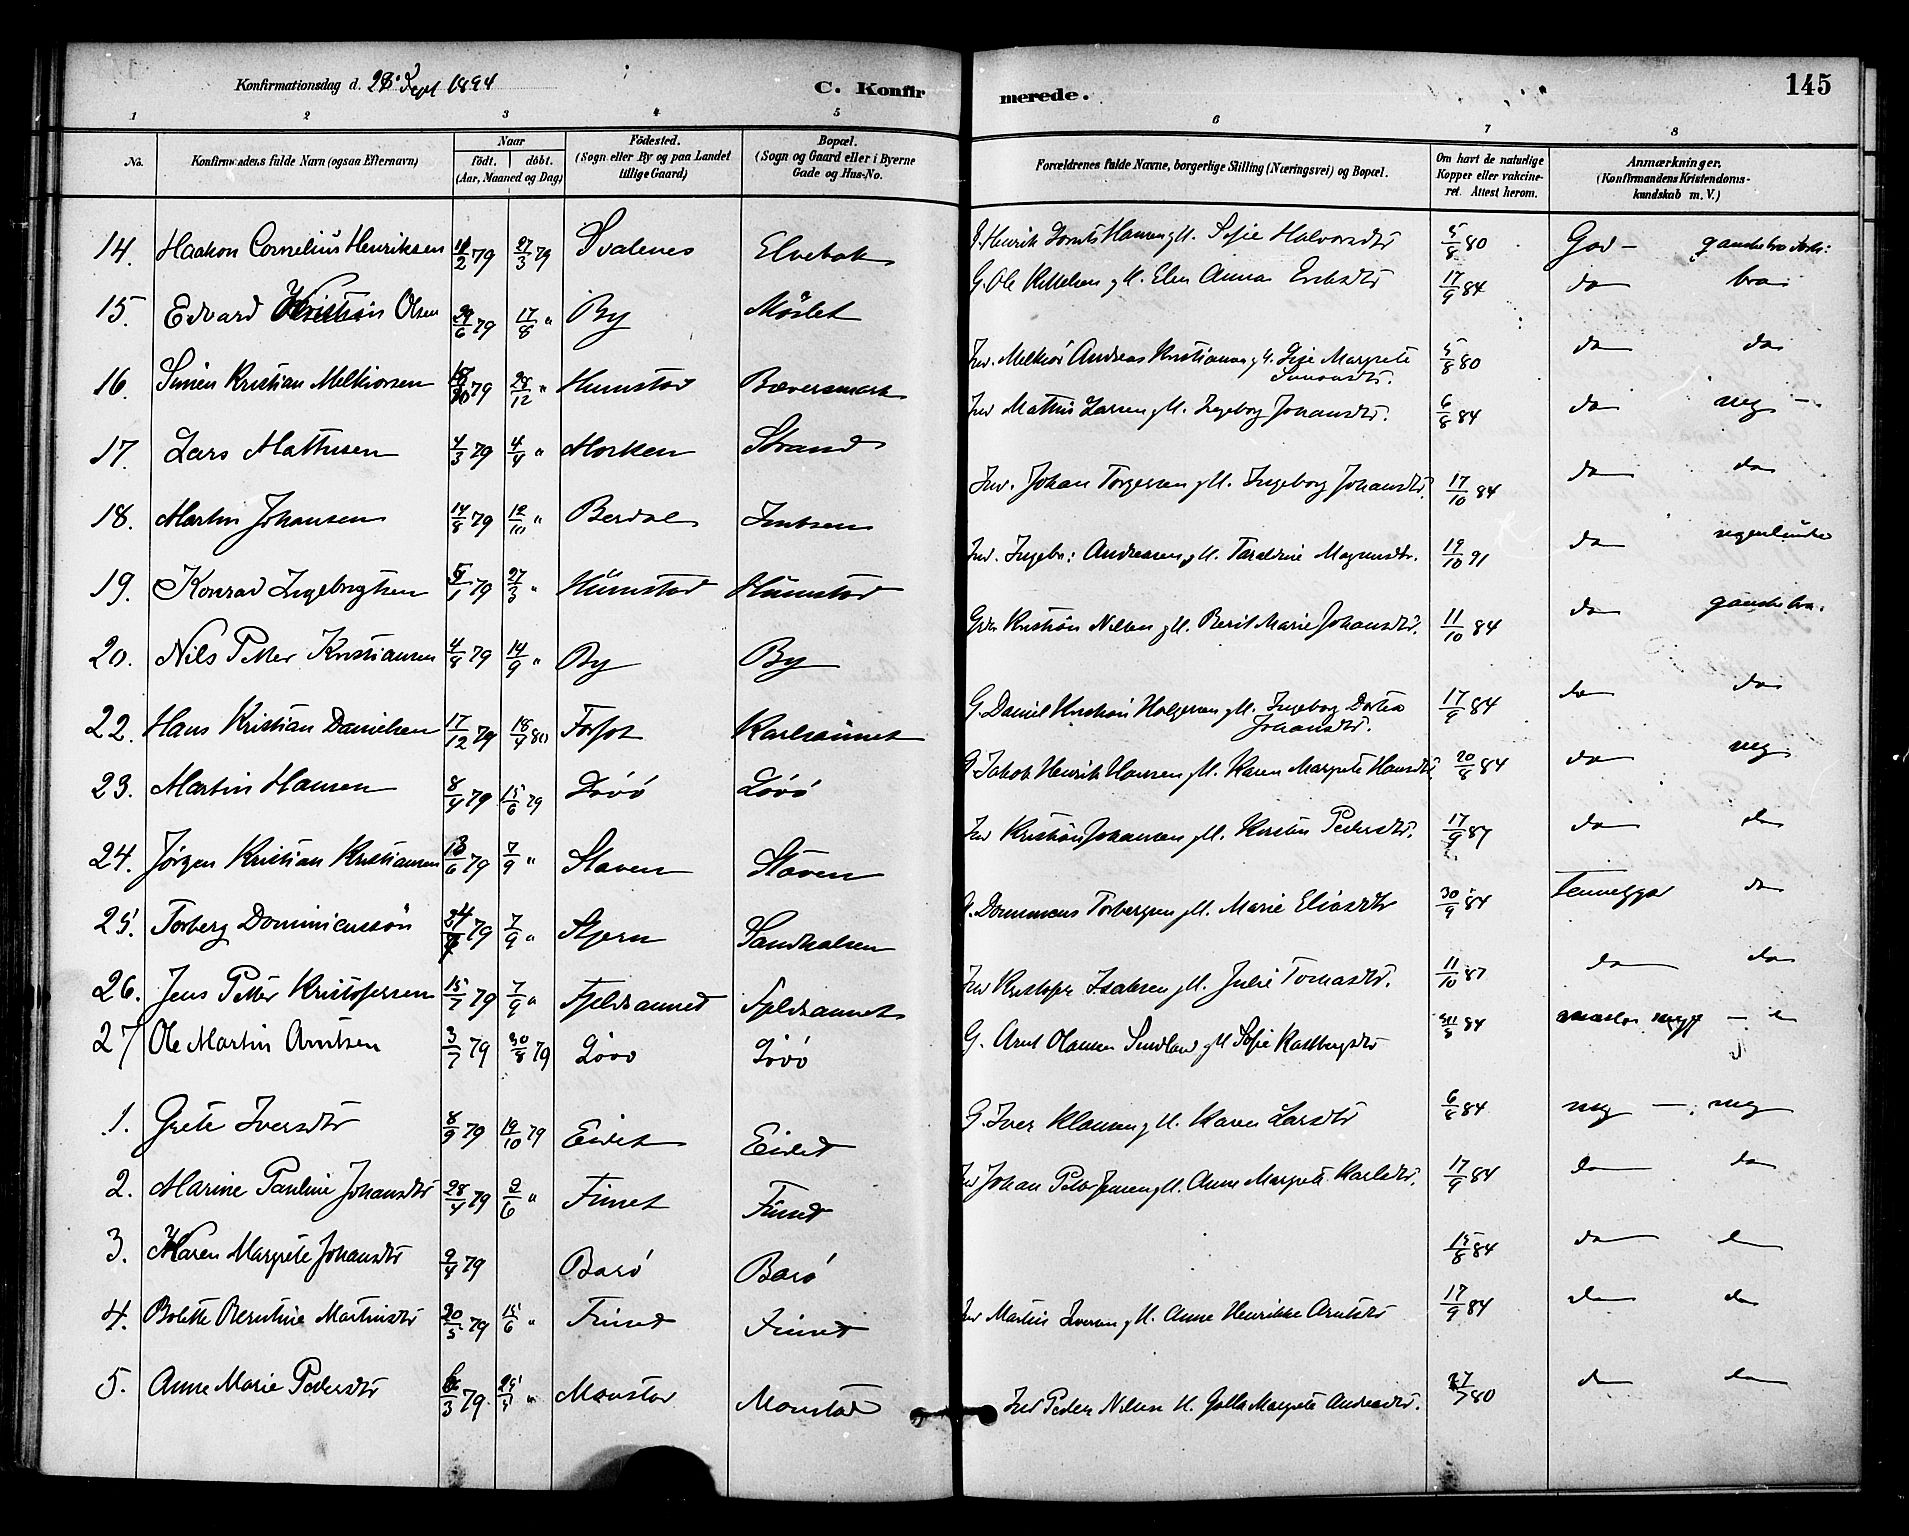 Konfirmationsdag d. 28. Sept 1894
C. Konfirmerede.
145
1 2 3 4 5 6 7 8
No. Konfirmandens fulde Navn (ogsaa Efternavn) Naar födt. döbt. (Aar, Maaned og Dag) Födested. (Sogn eller By og paa Landet tillige Gaard) Bopæl. (Sogn og Gaard eller i Byerne Gade og Hus-No. Forældrenes fulde Navne, borgerlige Stilling (Næringsvei) og Bopæl. Om havt de naturlige Kopper eller vakcineret. Attest herom. Anmærkninger. (Konfirmandens Kristendomskundskab m. V.)
14. Haakon Cornelius Henriksen 2 79 27/3 79 Svalenes Elvebak Henrik Hansen g M. Sofie Halvorsdtr 5/8 80 God –
15. Edvard Kristian Olsen 29/6 79 17/8 " By Möslet G. Ole Kittelsen g M. Elen Anna Eriksdtr 17/9 84 do bra
16. Simen Kristian Melkiorsen 79 28/12 " Humstad Bæversmark Ind. Melkiör Andreas Kristiansen g M. Margrete Simonsdtr. 5/8 80 do do
17. Lars Mathisen 4/3 79 4/4 " Morken Strand Ind Mathis Larsen g M. Ingeborg Johansdtr. 6/8 84 do meg –
18. Martin Johansen 14/8 79 12/10 " Berdal Ind. Johan Torgersen g M. Ingeborg Johansdtr. 17/10 84 do do
19. Konrad Ingebrigtsen 5/1 79 27/3 " Humstad Humstad Ind. Ingebr: Andreasen g M. Magnusdtr. 19/10 91 do
20. Nils Petter Kristiansen 4/8 79 14/9 " By By Kristian Nilsen g M. Berit Marie Johansdtr. 11/10 84 do ganske bra.
22. Hans Kristian Danielsen 17/12 79 18/4 80 Forfot Karlsaunet G. Daniel Kristian Holgersen g M. Ingeborg Dortea Johansdtr. 17/9 84 do do
23. Martin Hansen 8/4 79 15/6 79 Lövö Lövö G Jakob Henrik Hansen g M. Karen Margrete Hansdtr 20/8 84 do meg
24. Jörgen Kristian Kristiansen 13/6 79 7/9 " Staven Staven Ind Kristian Johansen g M. Kirstin Pedersdtr. 17/9 87 do do
25. Torberg Dominicussön 24 79 7/9 " Stjern Sandhalsen G. Dominicus Torbergsen g M. Marie Eliasdtr 30/9 84 do
26. Jens Petter Kristofersen 15/7 79 7/9 " Fjeldsaunet Fjeldsaunet Ind Kristofer Isaksen g M. Julie Tomasdtr. 11/10 87 do do
27 Ole Martin Arntsen 3/7 79 30/8 79 Lövö Lövö G. Arnt Olausen g M Sofie 84
1. Grete Iversdtr 8/9 79 19/10 79 Eidet Eidet G. Iver Klausen g M. Karen Larsdtr 6/8 84 meg – meg
2. Marine Pauline Johansdtr 28/4 79 2/6 " Finnet Finnet Johan Peter Jensen g M. Anne Margrete Karlsdtr. 17/9 84 do do
3. Karen Margrete Johansdtr 9/4 79 Barö Barö 15/8 84 do do
4. Bolette Berntine Martinsdtr 20/5 79 15/6 " Finnet Finnet Ind Martin Iversen g M. Anne Henrikke Arntsdtr 17/9 84 do do
5. Anne Marie Pedersdtr 3 79 25 " Monstad Monstad Ind Peder Nilsen M. Margrete Andreasdtr. 27/7 80 do do